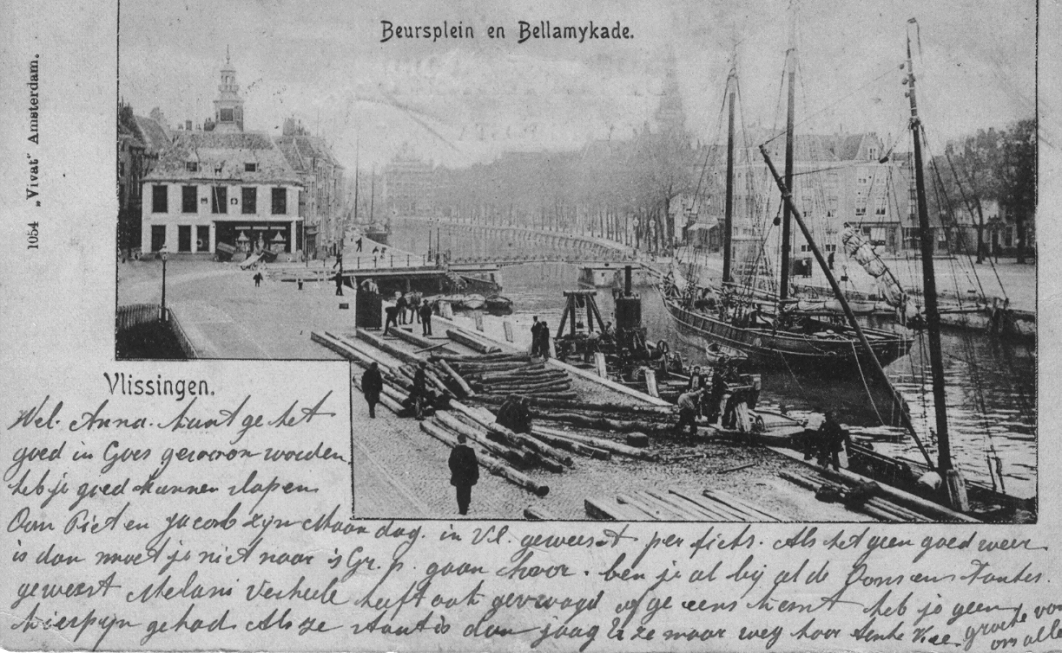 Beursplein en Bellamykade.
1054 „Vivat" Amsterdam.
Vlissingen.
Wel. Anna. kunt ge het
goed in Goes gewoon worden.
heb je goed kunnen slapen
Oom Piet en Jacob zijn Maandag. in Vl. geweest per fiets. Als het geen goed weer
is dan moet je niet naar 's Gr. p. gaan hoor. ben je al bij al de Ooms en Tantes.
geweest Melani Verheele heeft ook gevraagd of ge eens komt heb je geen
kierpijn gehad. Als ze stout is dan jaag ze maar weg hoor
groete van
ons alle